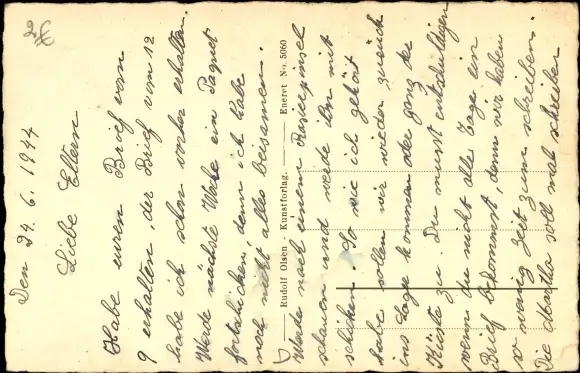 Den 24. 6. 1944
Liebe Eltern
Habe euren Brief vom
9 erhalten, der Brief vom 12
habe ich schon vorher erhalten.
Werde nächste Woche ein Paquet
fortschicken, denn ich habe
noch nicht alles beisammen.
Rudolf Olsen - Kunstforlag. Eneret No. 5060
Werde nach einem Rasierpinsel
schauen und werde ihn mit
schicken. So wie ich gehört
habe sollen wir wieder zurück
ins Lager kommen oder ganz der
Küste zu. Du musst entschuldigen
wenn du nicht alle Tage ein
Brief bekommst, denn wir haben
so wenig Zeit zum schreiben.
Die Martha soll mal schreiben